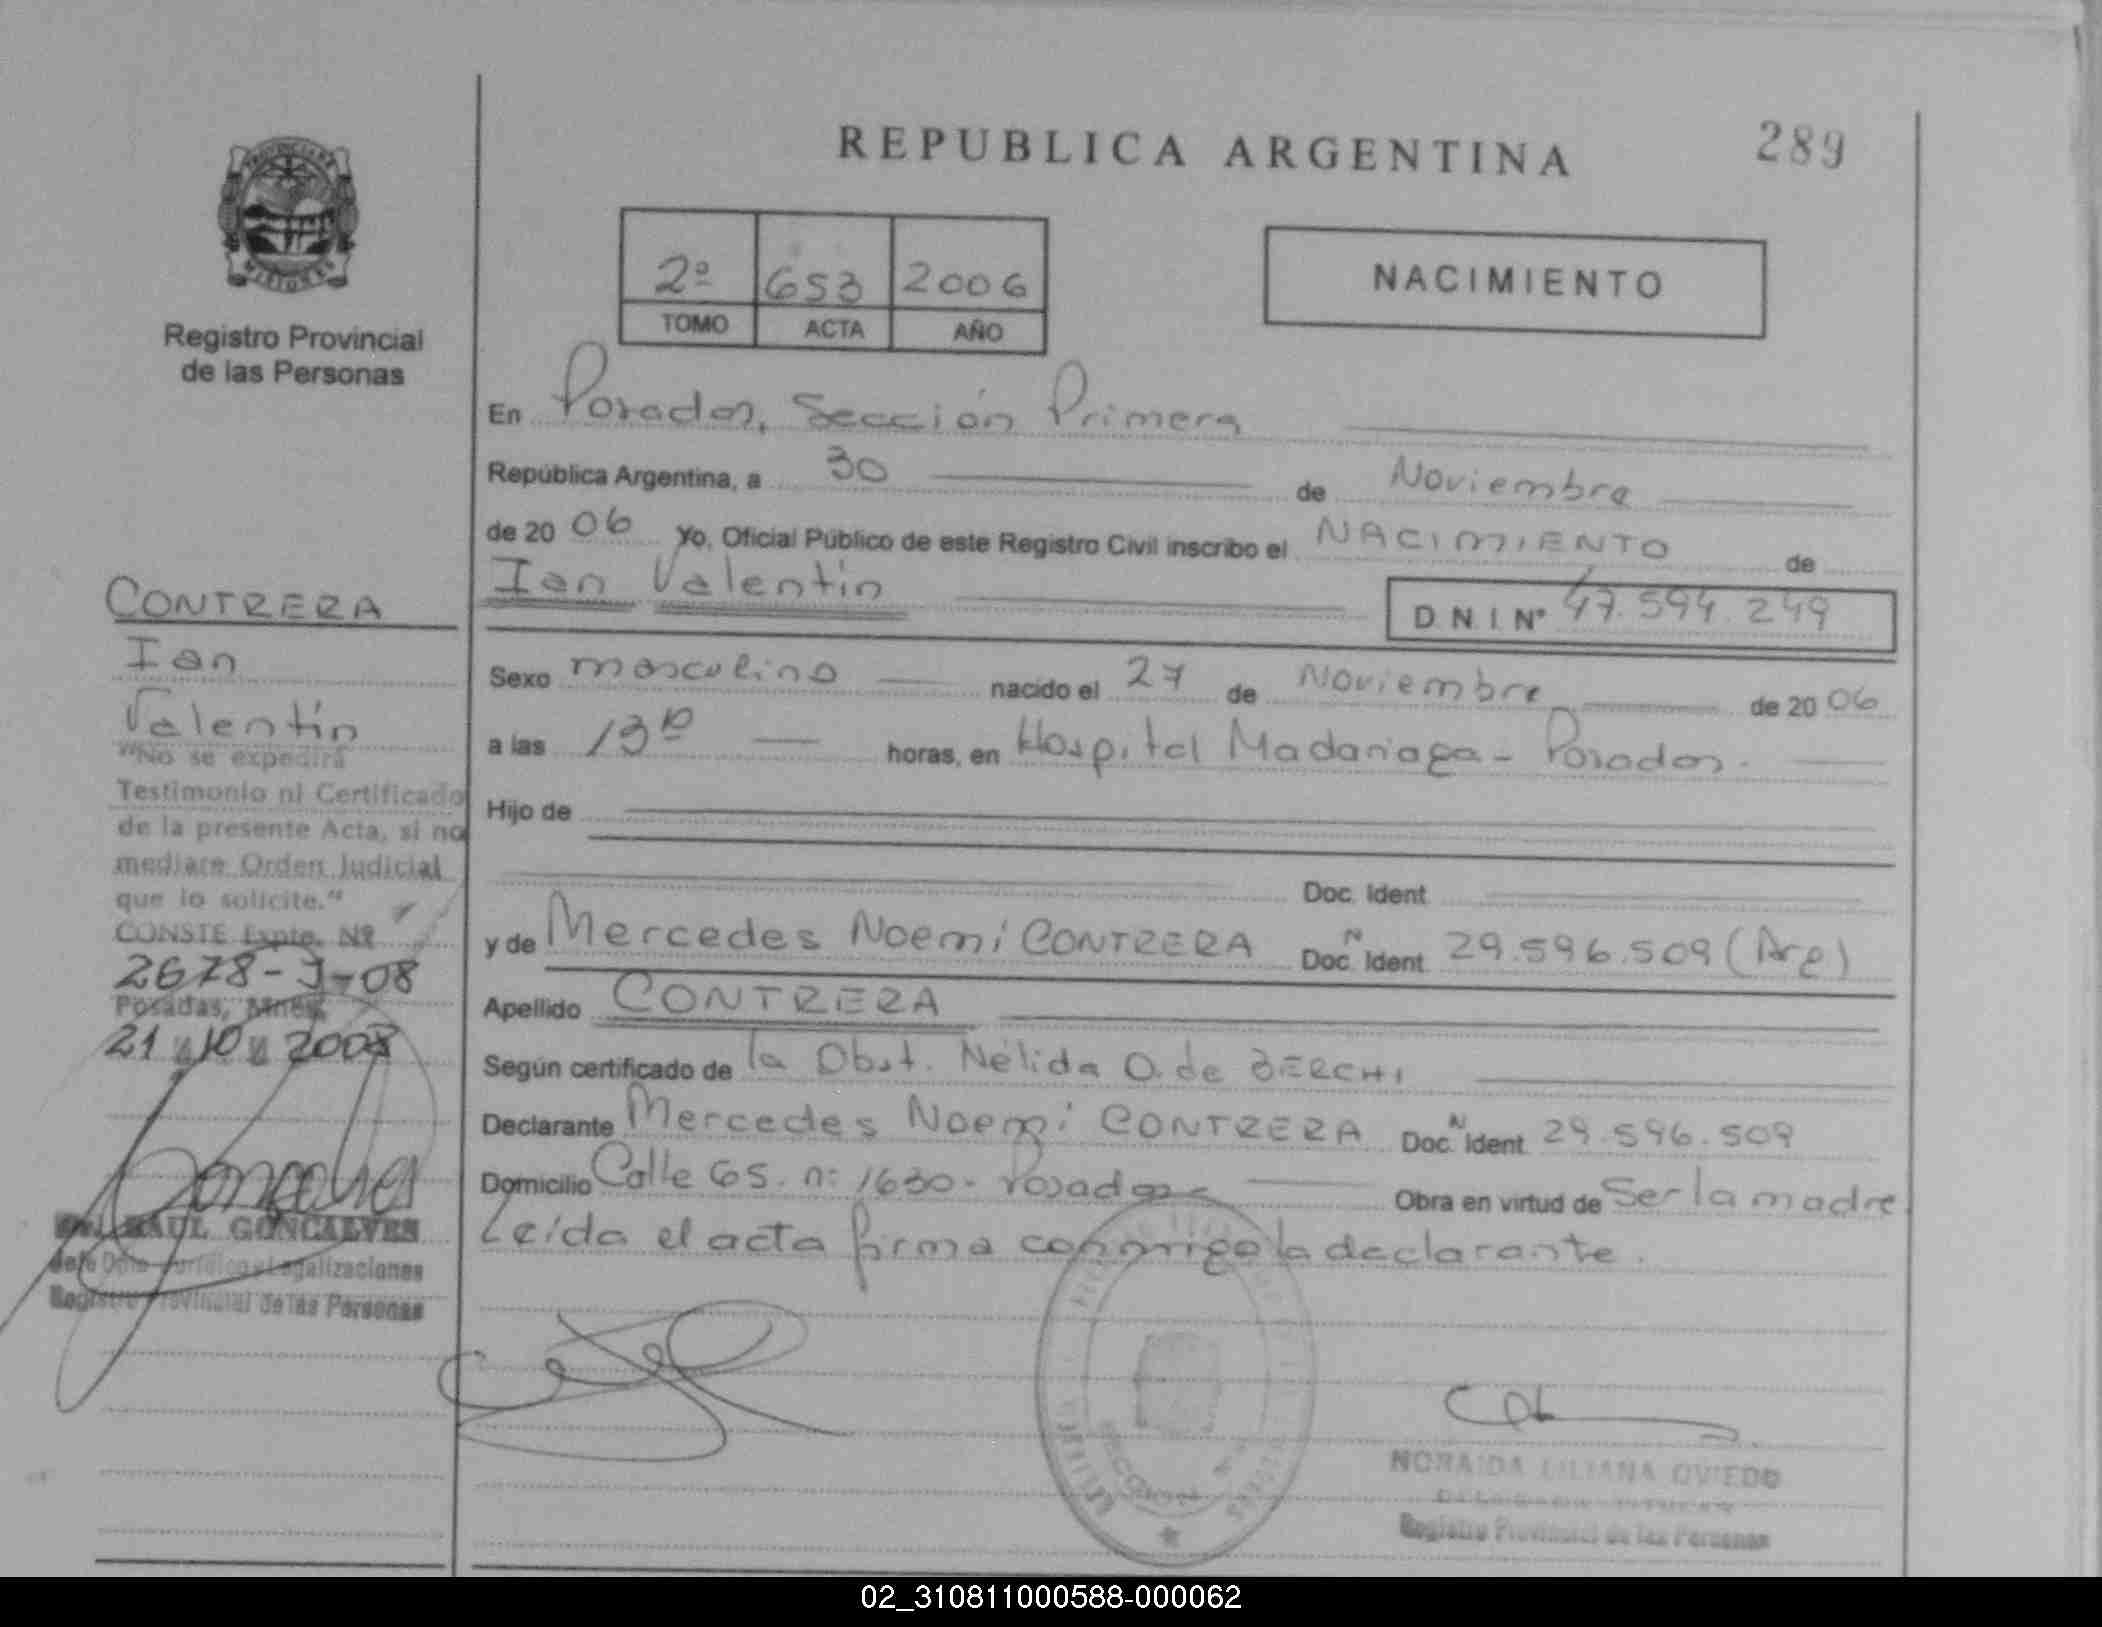 REPUBLICA ARGENTINA
289
PROVINCIA DE
MISIONES
Registro Provincial
de las Personas
2º 653 2006
TOMO ACTA AÑO
NACIMIENTO
En Posadas, Sección Primera
República Argentina, a 30 de Noviembre
de 2006 Yo, Oficial Público de este Registro Civil inscribo el NACIMIENTO de
Ian Valentín D.N.I. Nº 47.594.249
Sexo masculino nacido el 27 de Noviembre de 2006
a las 13 horas, en Hospital Madariaga - Posadas.
Hijo de
Doc. Ident.
y de Mercedes Noemí CONTRERA Doc. N Ident. 29.596.509 (Arg)
Apellido CONTRERA
Según certificado de la Obst. Nélida O. de BERCHI
Declarante Mercedes Noemí CONTRERA Doc. N Ident. 29.596.509
Domicilio Calle 65. nº 1630 - Posadas Obra en virtud de Ser la madre
Leída el acta firma conmigo la declarante.
CONTRERA
Ian
Valentín
"No se expedirá
Testimonio ni Certificado
de la presente Acta, si no
mediare Orden Judicial
que lo solicite."
CONSTE Expte. Nº
2678-J-08
Posadas, Mnes.
21 10 2008
RAUL GONCALVES
Jefe Dpto Jurídico y Legalizaciones
Registro Provincial de las Personas
NORAIDA LILIANA OVIEDO
Registro Provincial de las Personas
02_310811000588-000062